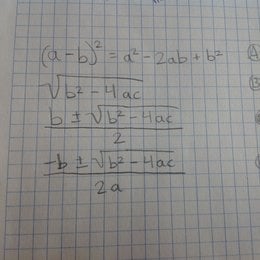 (a-b)² = a² - 2ab + b²
√(b² - 4ac)
(b ± √(b² - 4ac)) / 2
(-b ± √(b² - 4ac)) / 2a
A
B